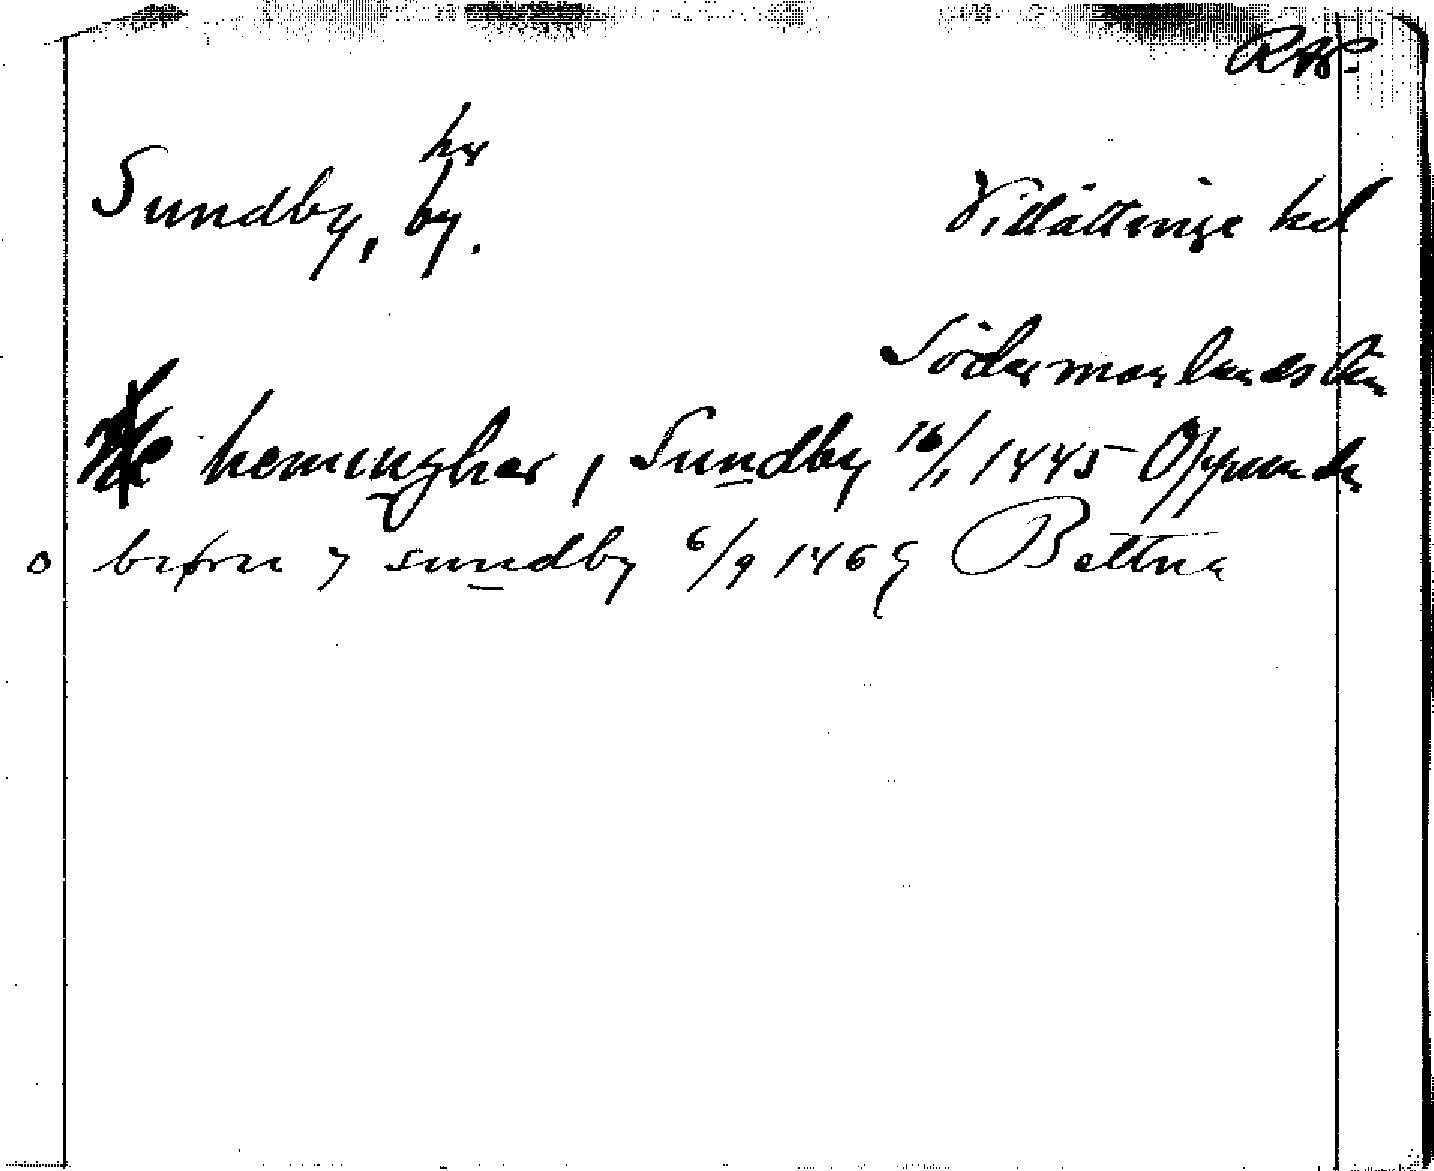 hg
Sundby, by. Villåttinge hd
Södermanlands län
hemingher i Sundby 16/1 1445 Oppunda
o biørn j sundby 6/9 1469 Bettna